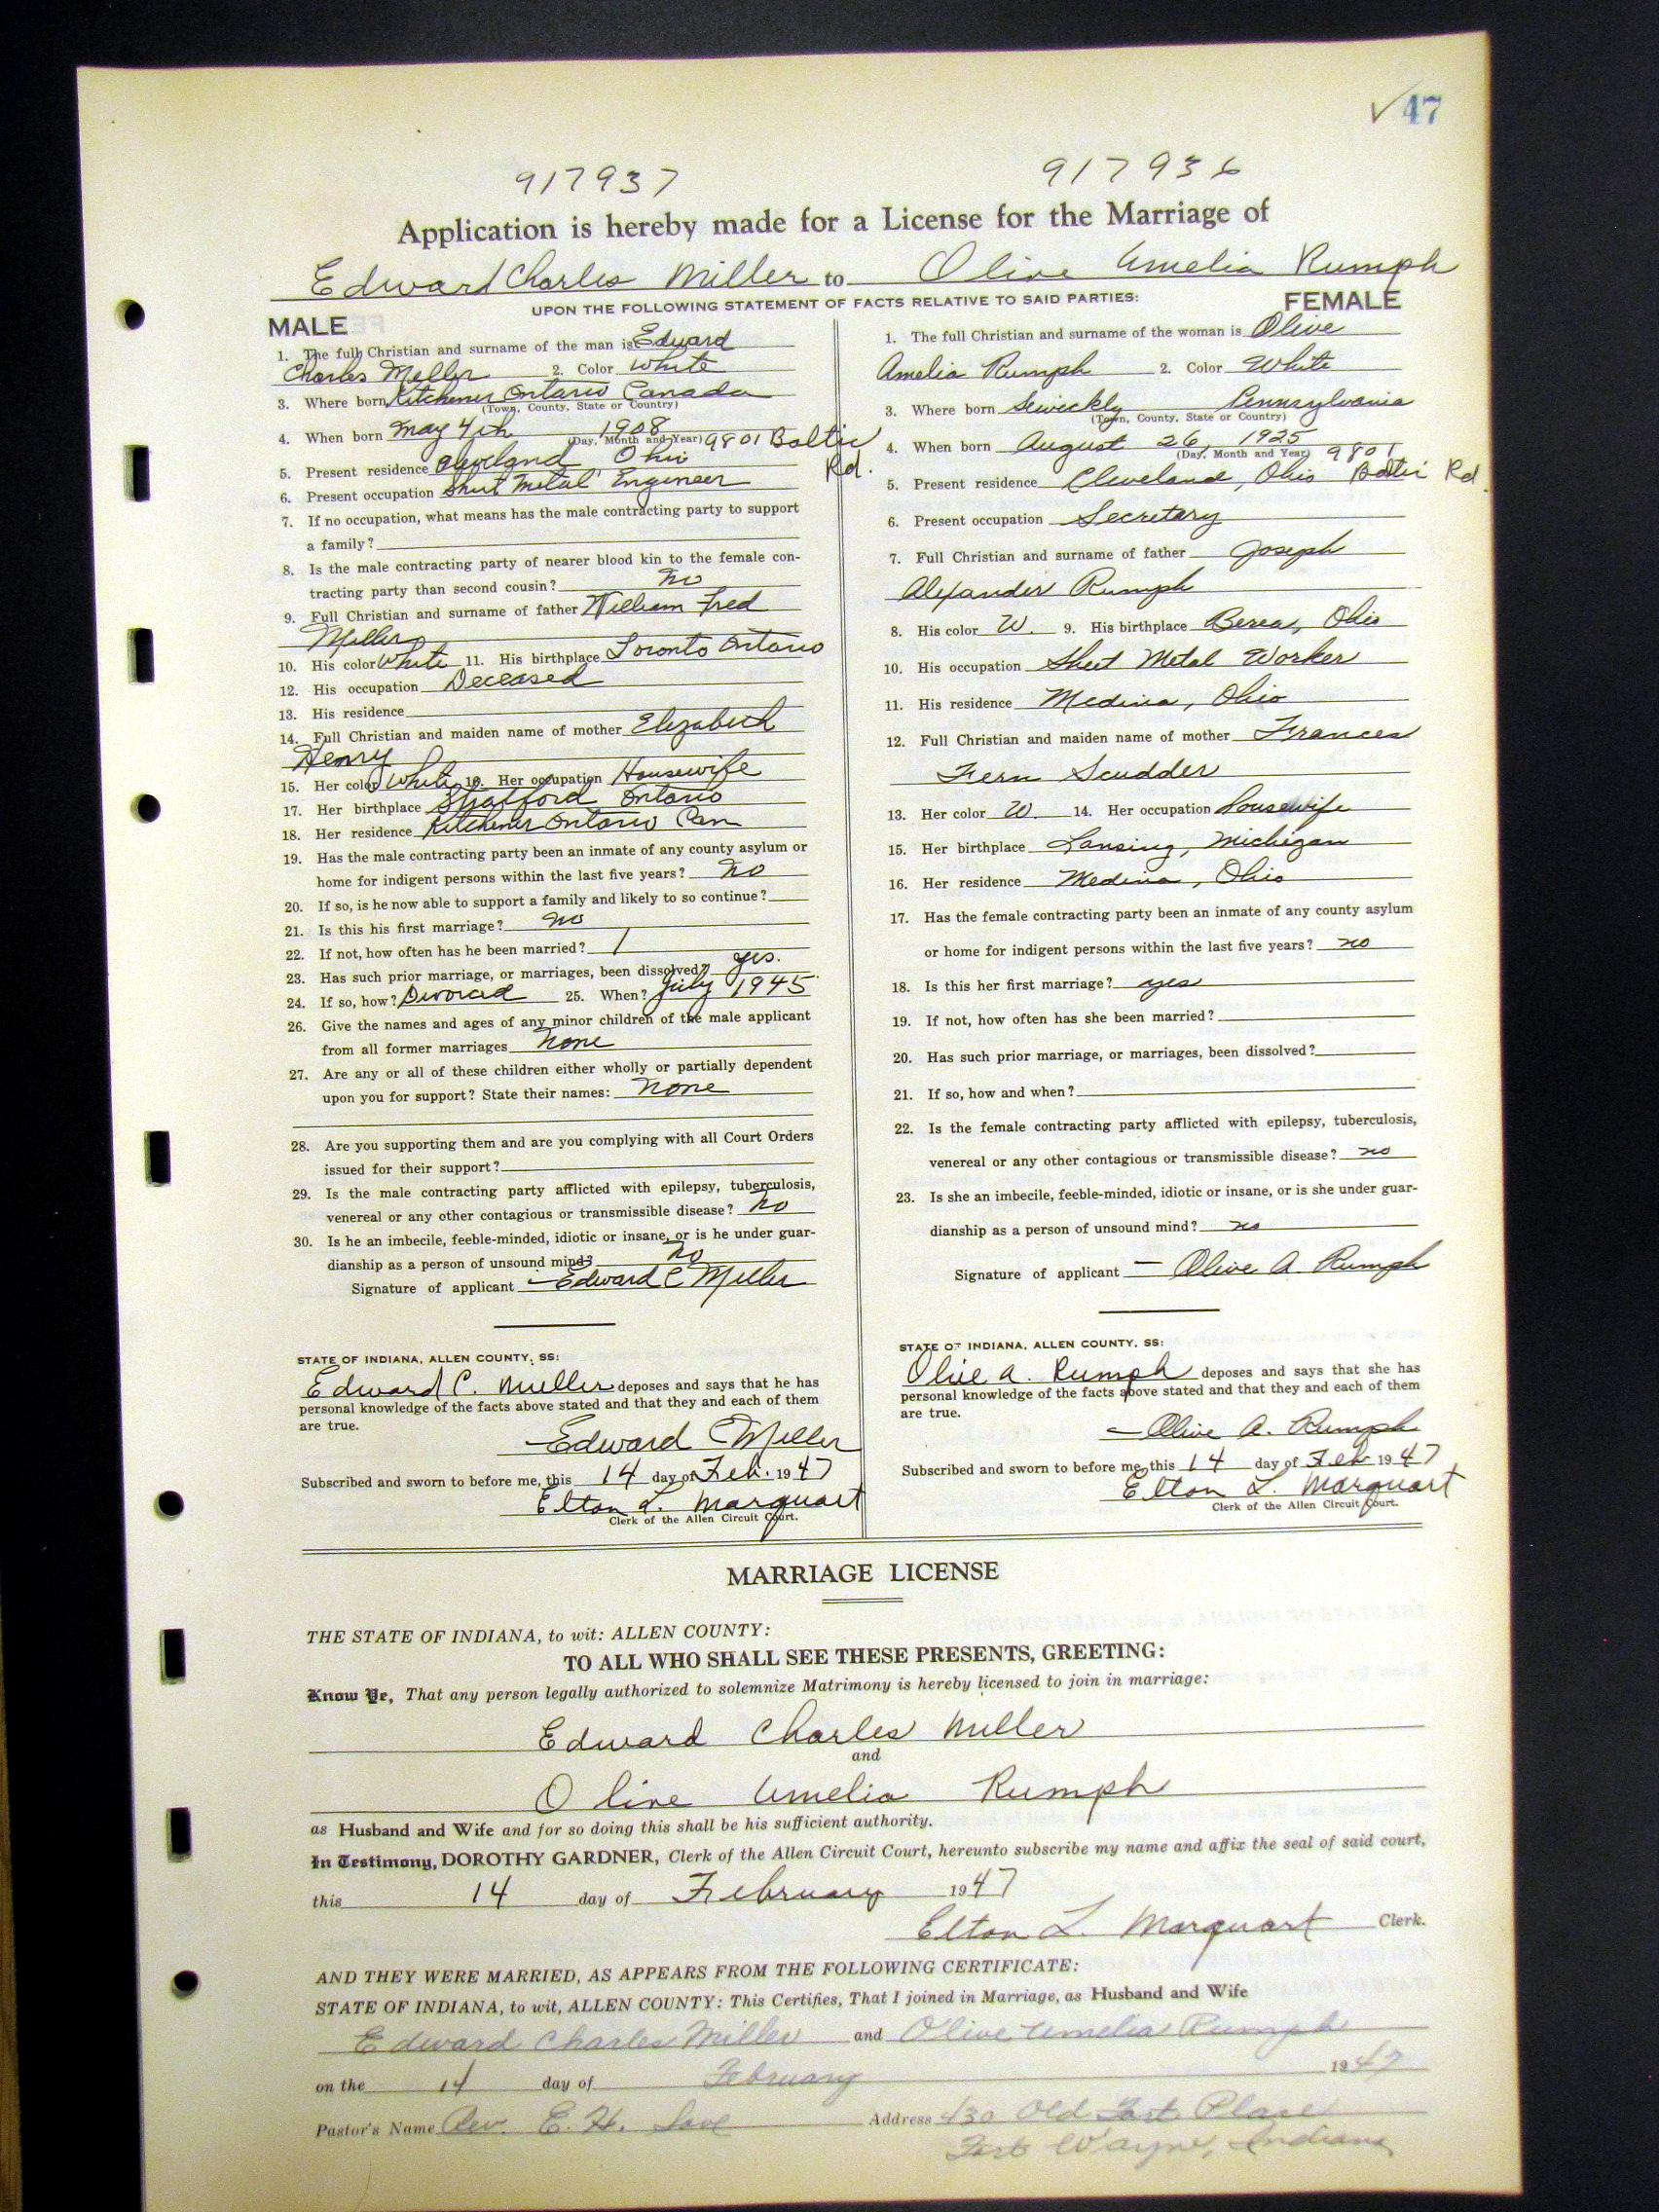 ✓ 47
917937 917936
Application is hereby made for a License for the Marriage of
Edward Charles Miller to Olive Amelia Rumph
UPON THE FOLLOWING STATEMENT OF FACTS RELATIVE TO SAID PARTIES:
MALE
1. The full Christian and surname of the man is Edward
Charles Miller 2. Color White
3. Where born Kitchener Ontario Canada
(Town, County, State or Country)
4. When born May 4th 1908
(Day, Month and Year) 9801 Baltic Rd.
5. Present residence Cleveland Ohio
6. Present occupation Sheet Metal Engineer
7. If no occupation, what means has the male contracting party to support
a family?
8. Is the male contracting party of nearer blood kin to the female con-
tracting party than second cousin? no
9. Full Christian and surname of father William Fred
Miller
10. His color White 11. His birthplace Toronto Ontario
12. His occupation Deceased
13. His residence
14. Full Christian and maiden name of mother Elizabeth
Henry
15. Her color White 16. Her occupation Housewife
17. Her birthplace Stratford Ontario
18. Her residence Kitchener Ontario Can
19. Has the male contracting party been an inmate of any county asylum or
home for indigent persons within the last five years? no
20. If so, is he now able to support a family and likely to so continue?
21. Is this his first marriage? no
22. If not, how often has he been married? 1
23. Has such prior marriage, or marriages, been dissolved? yes.
24. If so, how? Divorced 25. When? July 1945
26. Give the names and ages of any minor children of the male applicant
from all former marriages None
27. Are any or all of these children either wholly or partially dependent
upon you for support? State their names: None
28. Are you supporting them and are you complying with all Court Orders
issued for their support?
29. Is the male contracting party afflicted with epilepsy, tuberculosis,
venereal or any other contagious or transmissible disease? no
30. Is he an imbecile, feeble-minded, idiotic or insane, or is he under guar-
dianship as a person of unsound mind? no
Signature of applicant Edward C Miller
STATE OF INDIANA, ALLEN COUNTY, SS:
Edward C. Miller deposes and says that he has
personal knowledge of the facts above stated and that they and each of them
are true.
Edward C Miller
Subscribed and sworn to before me, this 14 day of Feb. 1947
Elton L. Marquart
Clerk of the Allen Circuit Court.
FEMALE
1. The full Christian and surname of the woman is Olive
Amelia Rumph 2. Color White
3. Where born Sewickly Pennsylvania
(Town, County, State or Country)
4. When born August 26, 1925
(Day, Month and Year) 9801
5. Present residence Cleveland, Ohio Baltic Rd.
6. Present occupation Secretary
7. Full Christian and surname of father Joseph
Alexander Rumph
8. His color W. 9. His birthplace Berea, Ohio
10. His occupation Sheet Metal Worker
11. His residence Medina, Ohio
12. Full Christian and maiden name of mother Frances
Fern Scudder
13. Her color W. 14. Her occupation housewife
15. Her birthplace Lansing, Michigan
16. Her residence Medina, Ohio
17. Has the female contracting party been an inmate of any county asylum
or home for indigent persons within the last five years? no
18. Is this her first marriage? yes
19. If not, how often has she been married?
20. Has such prior marriage, or marriages, been dissolved?
21. If so, how and when?
22. Is the female contracting party afflicted with epilepsy, tuberculosis,
venereal or any other contagious or transmissible disease? no
23. Is she an imbecile, feeble-minded, idiotic or insane, or is she under guar-
dianship as a person of unsound mind? no
Signature of applicant Olive A. Rumph
STATE OF INDIANA, ALLEN COUNTY, SS:
Olive A. Rumph deposes and says that she has
personal knowledge of the facts above stated and that they and each of them
are true.
Olive A. Rumph
Subscribed and sworn to before me, this 14 day of Feb 1947
Elton L. Marquart
Clerk of the Allen Circuit Court.
MARRIAGE LICENSE
THE STATE OF INDIANA, to wit: ALLEN COUNTY:
TO ALL WHO SHALL SEE THESE PRESENTS, GREETING:
Know Ye, That any person legally authorized to solemnize Matrimony is hereby licensed to join in marriage:
Edward Charles Miller
and
Olive Amelia Rumph
as Husband and Wife and for so doing this shall be his sufficient authority.
In Testimony, DOROTHY GARDNER, Clerk of the Allen Circuit Court, hereunto subscribe my name and affix the seal of said court,
this 14 day of February 1947
Elton L. Marquart Clerk.
AND THEY WERE MARRIED, AS APPEARS FROM THE FOLLOWING CERTIFICATE:
STATE OF INDIANA, to wit, ALLEN COUNTY: This Certifies, That I joined in Marriage, as Husband and Wife
Edward Charles Miller and Olive Amelia Rumph
on the 14 day of February 1947
Pastor's Name Rev. E. H. Address 430 Old Fort Place
Fort Wayne, Indiana